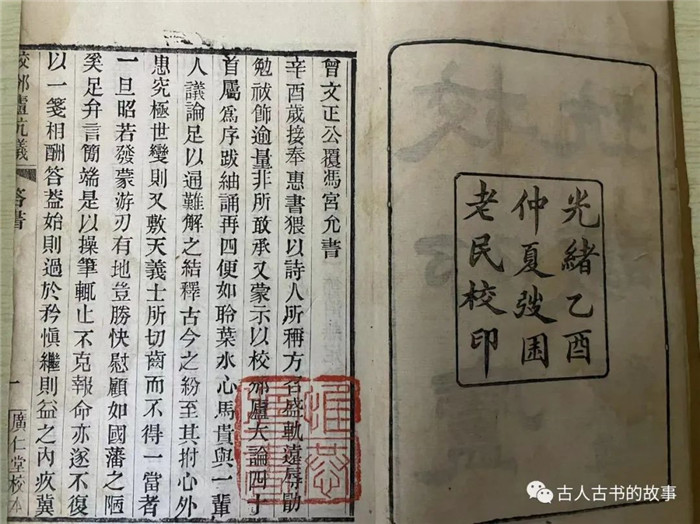 光緒乙酉
仲夏弢園
老民校印
曾文正公覆馮宮允書
辛酉歲接奉惠書猥以詩人所稱方召盛軌遠辱勖
勉祓飾逾量非所敢承又蒙示以校邠廬大論四十
首屬爲序跋紬誦再四便如聆葉水心馬貴與一輩
人議論足以通難解之結釋古今之紛至其拊心外
患究極世變則又敷天義士所切齒而不得一當者
一旦昭若發蒙游刃有地豈勝快慰顧如國藩之陋
奚足弁言簡端是以操筆輒止不克報命亦遂不復
以一箋相酬答蓋始則過於矜慎繼則益之內疚冀
校邠廬抗議 答書 一 廣仁堂校本
古人古书的故事